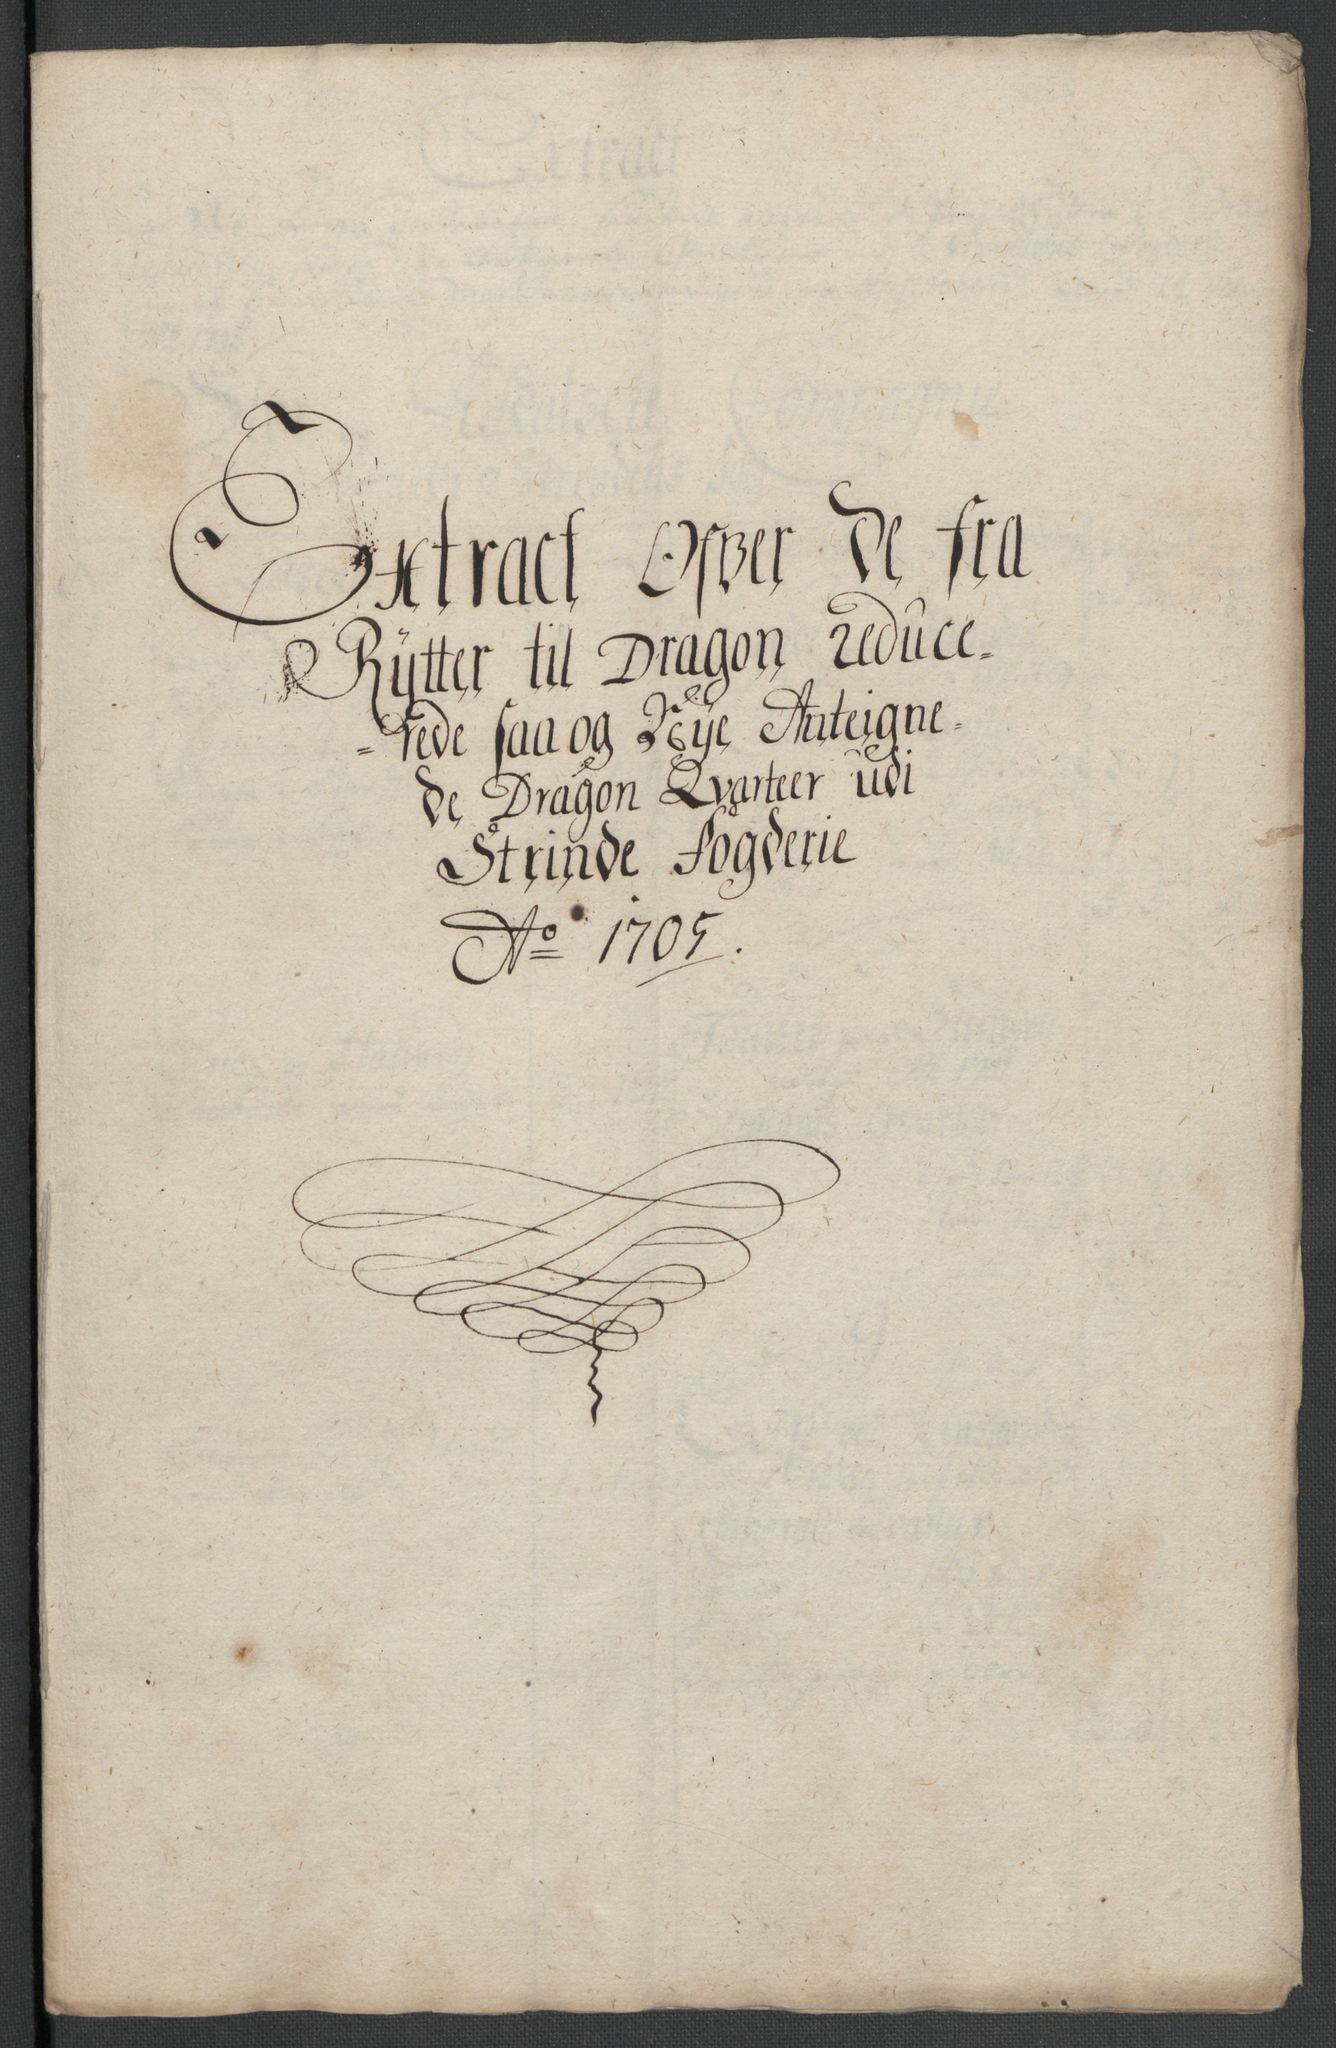 Extract Ofver de fra
Rÿtter til Dragon reduce-
=rede saa og Nÿe Anteigne-
de Dragon Qvarteer udi
Strinde Fogderie
Ao 1705.